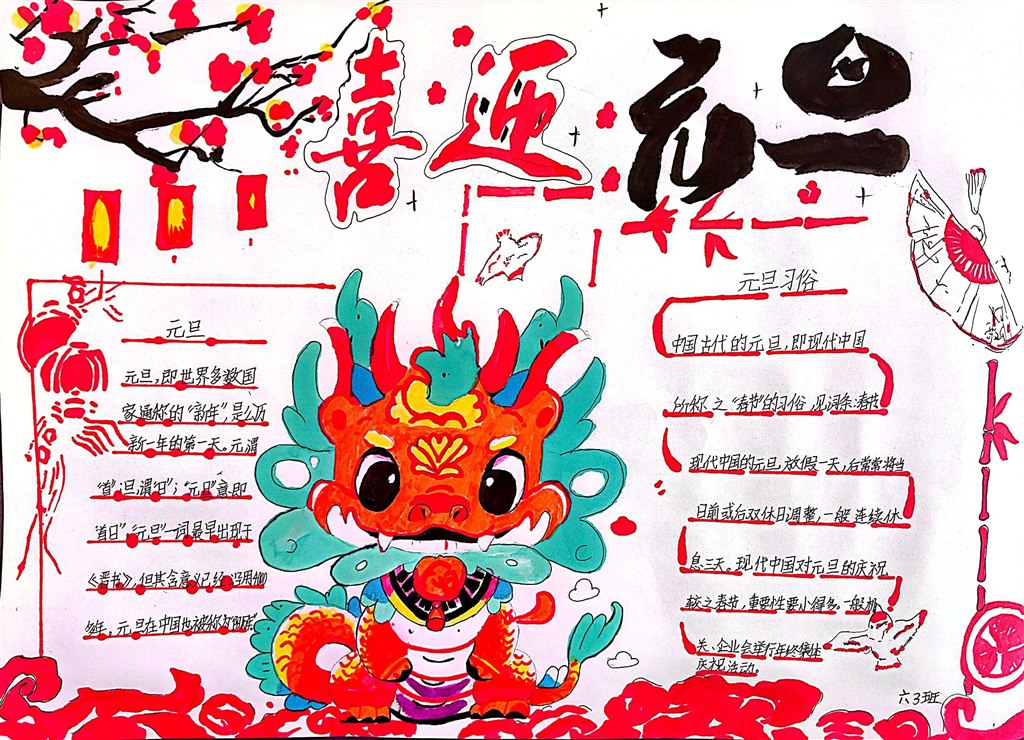 喜迎元旦
元旦
元旦,即世界多数国
家通称的“新年”,是公历
新一年的第一天。元,谓
“首”;旦,谓“日”;“元旦”意即
“首日”。“元旦”一词最早出现于
《晋书》,但其含意已经沿用4000
多年。元旦在中国也被称为“阳历
元旦习俗
中国古代的元旦,即现代中国
所称之“春节”的习俗,见词条:春节
现代中国的元旦,放假一天,后常常将当
日前或后双休日调整,一般连续休
息三天。现代中国对元旦的庆祝
较之春节,重要性要小得多。一般机
关、企业会举行年终集体
庆祝活动。
六3班